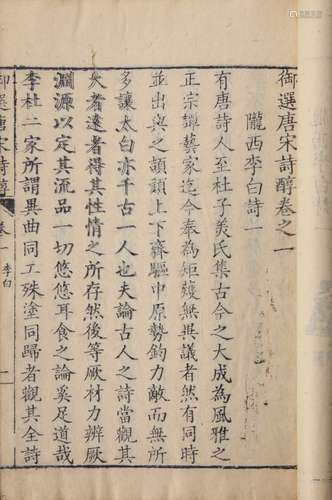 御選唐宋詩醇卷之一
隴西李白詩一
有唐詩人至杜子美氏集古今之大成為風雅之
正宗譚藝家迄今奉為矩矱無異議者然有同時
並出與之頡頏上下齊驅中原勢鈞力敵而無所
多讓太白亦千古一人也夫論古人之詩當觀其
大者遠者得其性情之所存然後等厥材力辨厥
淵源以定其流品一切悠悠耳食之論奚足道哉
李杜二家所謂異曲同工殊塗同歸者觀其全詩
御選唐宋詩醇 卷一 李白 一